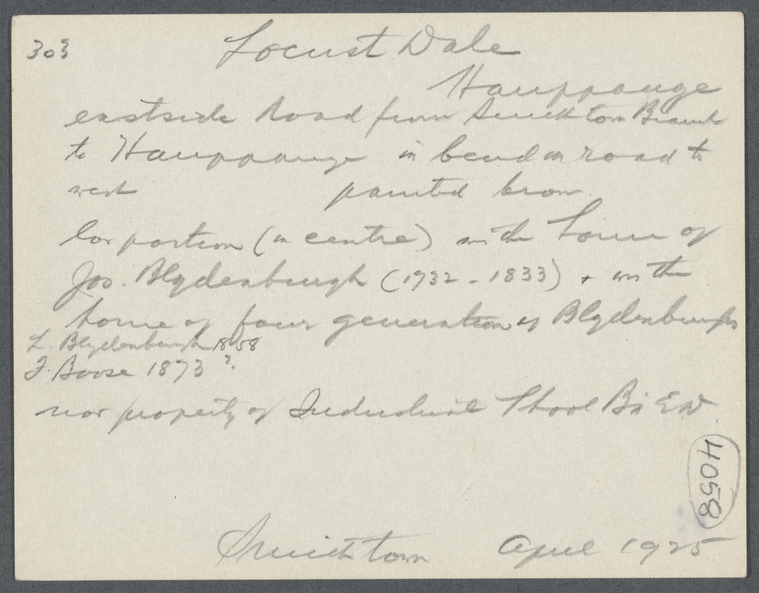 303
Locust Dale
Hauppauge
eastside Road from Smithtown Branch
to Hauppauge in bend in road to
west painted brown
low portion (in centre) is the home of
Jos. Blydenburgh (1732-1833) + is the
home of four generations of Blydenburghs
L. Blydenburgh 1858
J. Boose 1873 ?
now property of Industrial School
4058
Smithtown April 1925